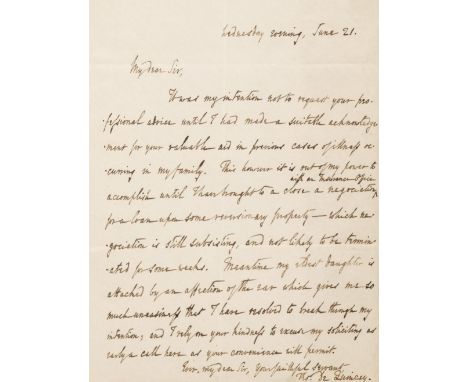 Wednesday evening, June 21.
My dear Sir,
It was my intention not to request your pro-
-fessional advice until I had made a suitable acknowledge
-ment for your valuable aid in previous cases of illness oc
-curring in my family. This however it is out of my power to
with an Insurance Office
accomplish until I have brought to a close a negociation
for a loan upon some reversionary property — which ne
-gociation is still subsisting, and not likely to be termin
-ated for some weeks. Meantime my eldest daughter is
attacked by an affection of the ear which gives me so
much uneasiness that I have resolved to break through my
intention; and I rely on your kindness to excuse my soliciting as
early a call here as your convenience will permit.
Ever, my dear Sir, your faithful servant
Tho. De Quincey.